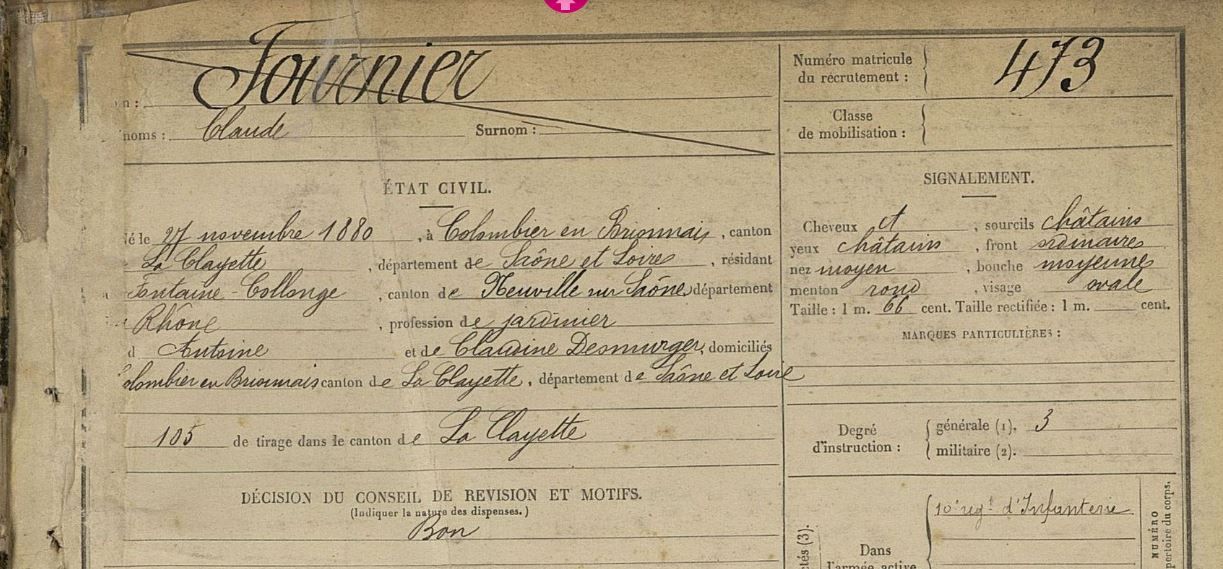 Fournier
n :
noms : Claude Surnom :
ÉTAT CIVIL.
é le 27 novembre 1880 , à Colombier en Brionnais , canton
La Clayette , département de Saône et Loire , résidant
Fontaine-Collonge , canton de Neuville sur Saône, département
Rhone , profession de jardinier
d Antoine et de Claudine Desmurger, domiciliés
Colombier en Brionnais canton de La Clayette , département de Saône et Loire
105 de tirage dans le canton de La Clayette
DÉCISION DU CONSEIL DE REVISION ET MOTIFS.
(Indiquer la nature des dispenses.)
Bon
Numéro matricule
du recrutement : 473
Classe
de mobilisation :
SIGNALEMENT.
Cheveux et , sourcils châtains
yeux châtains , front ordinaires
nez moyen , bouche moyenne
menton rond , visage ovale
Taille : 1 m. 66 cent. Taille rectifiée : 1 m. cent.
MARQUES PARTICULIÈRES :
Degré
d'instruction :
générale (1). 3
militaire (2).
10e régt d'Infanterie
Dans
l'armée active
ctés (3).
NUMÉRO
pertoire du corps.